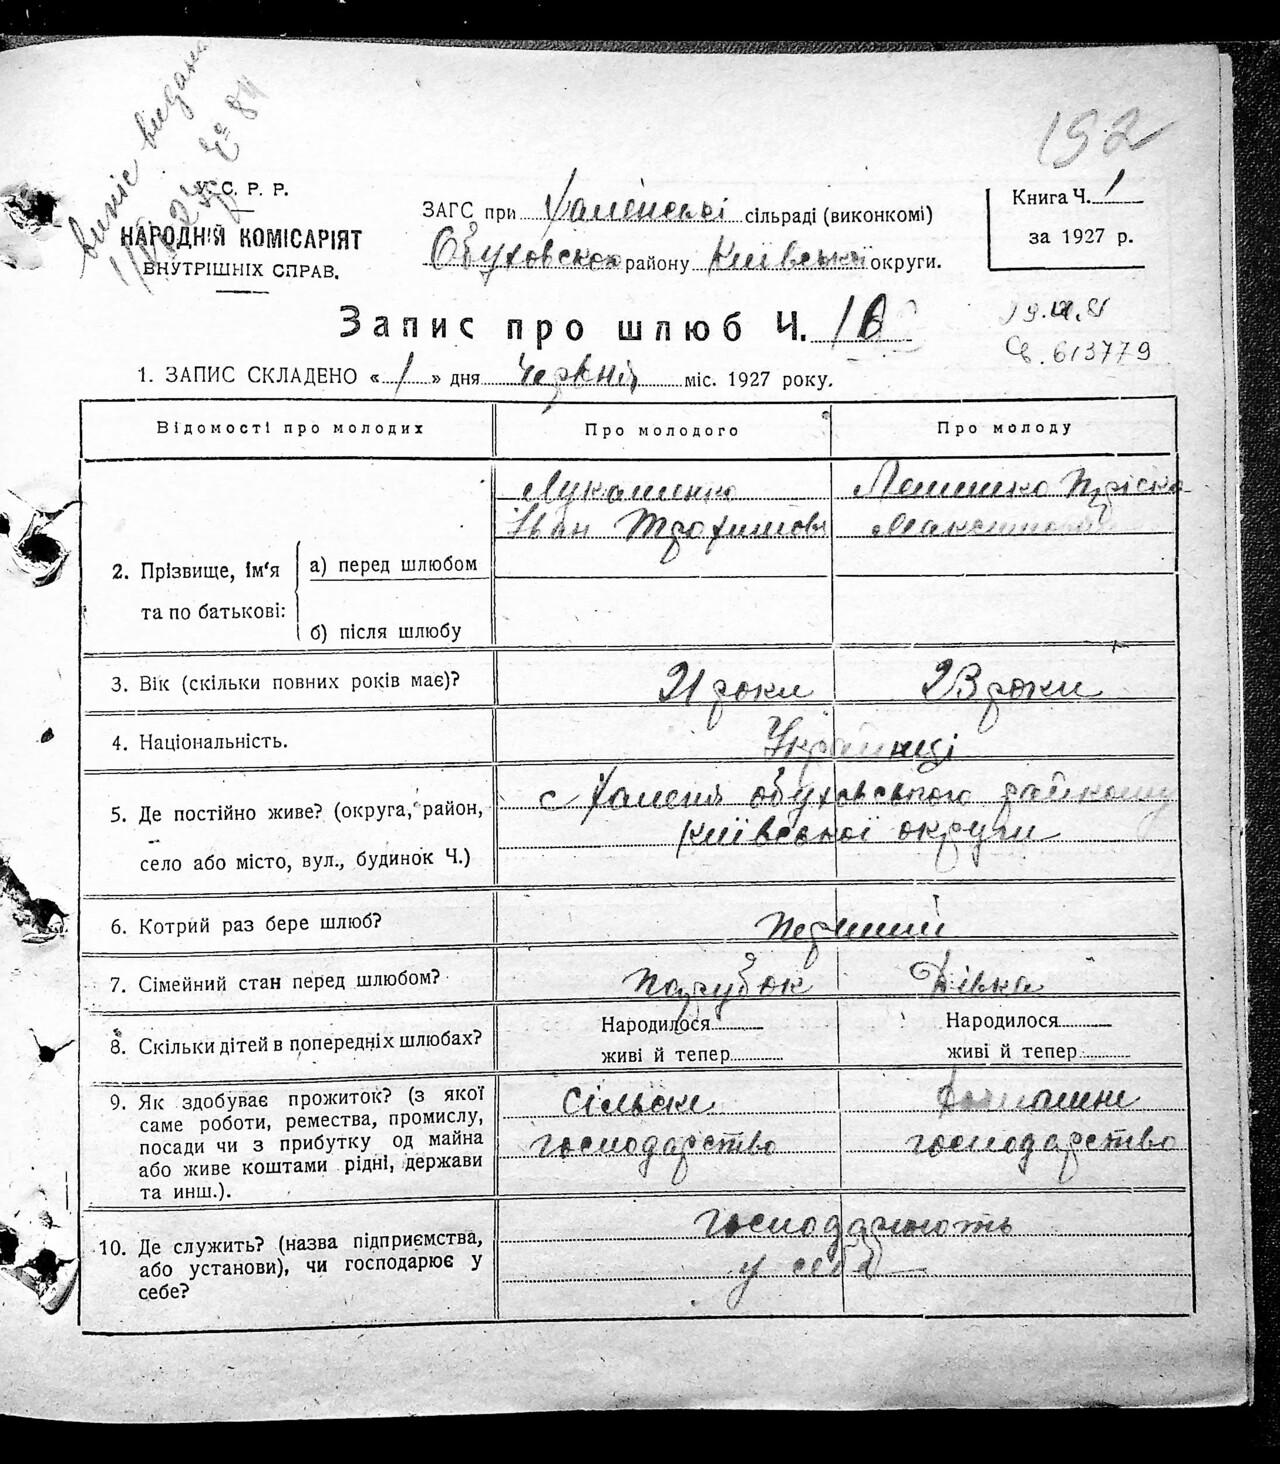 випис видано
152
У. С. Р. Р.
НАРОДНІЙ КОМІСАРІЯТ
ВНУТРІШНІХ СПРАВ.
ЗАГС при Халепські сільраді (виконкомі)
Обуховского району Київської округи.
Книга Ч. 1
за 1927 р.
Запис про шлюб Ч. 10
св. 613779
1. ЗАПИС СКЛАДЕНО « 1 » дня Червня міс. 1927 року.
Відомості про молодих Про молодого Про молоду
Лукашенко Лемешко Пріска
Іван Трохимов Максимовна
2. Прізвище, ім'я та по батькові: а) перед шлюбом
б) після шлюбу
3. Вік (скільки повних років має)? 21 роки 23 роки
4. Національність. Українці
5. Де постійно живе? (округа, район, с Халепя обуховського району
село або місто, вул., будинок Ч.) Київської округи
6. Котрий раз бере шлюб? Перший
7. Сімейний стан перед шлюбом? Парубок Дівка
8. Скільки дітей в попередніх шлюбах? Народилося Народилося
живі й тепер живі й тепер
9. Як здобуває прожиток? (з якої Сільске Домашне
саме роботи, ремества, промислу,
посади чи з прибутку од майна господарство господарство
або живе коштами рідні, держави
та инш.).
10. Де служить? (назва підприємства, господарюють
або установи), чи господарює у у себе
себе?